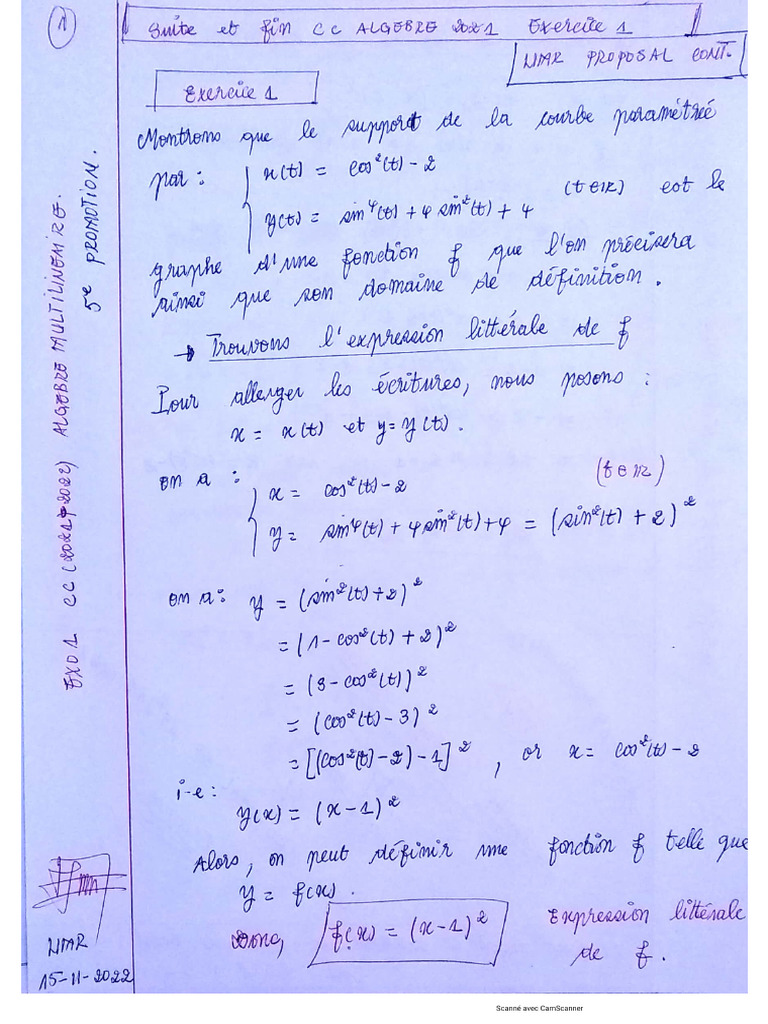 1
Suite et fin CC ALGEBRE 2021 Exercice 1
LIMAR PROPOSAL CONT.
Exercice 1
Montrons que le support de la courbe paramétrée
par : { x(t) = cos²(t) - 2
y(t) = sin⁴(t) + 4 sin²(t) + 4 (t∈ℝ) est le
graphe d'une fonction f que l'on précisera
ainsi que son domaine de définition.
→ Trouvons l'expression littérale de f
Pour alléger les écritures, nous posons :
x = x(t) et y = y(t).
on a : { x = cos²(t) - 2 (t∈ℝ)
y = sin⁴(t) + 4 sin²(t) + 4 = (sin²(t) + 2)²
on a : y = (sin²(t) + 2)²
= (1 - cos²(t) + 2)²
= (3 - cos²(t))²
= (cos²(t) - 3)²
= [(cos²(t) - 2) - 1]², or x = cos²(t) - 2
i-e :
y(x) = (x - 1)²
Alors, on peut définir une fonction f telle que
y = f(x).
Donc, f(x) = (x - 1)² Expression littérale
de f.
EXO 1 CC (2021-2022) ALGEBRE MULTILINEAIRE.
5e PROMOTION.
15-11-2022
Scanné avec CamScanner